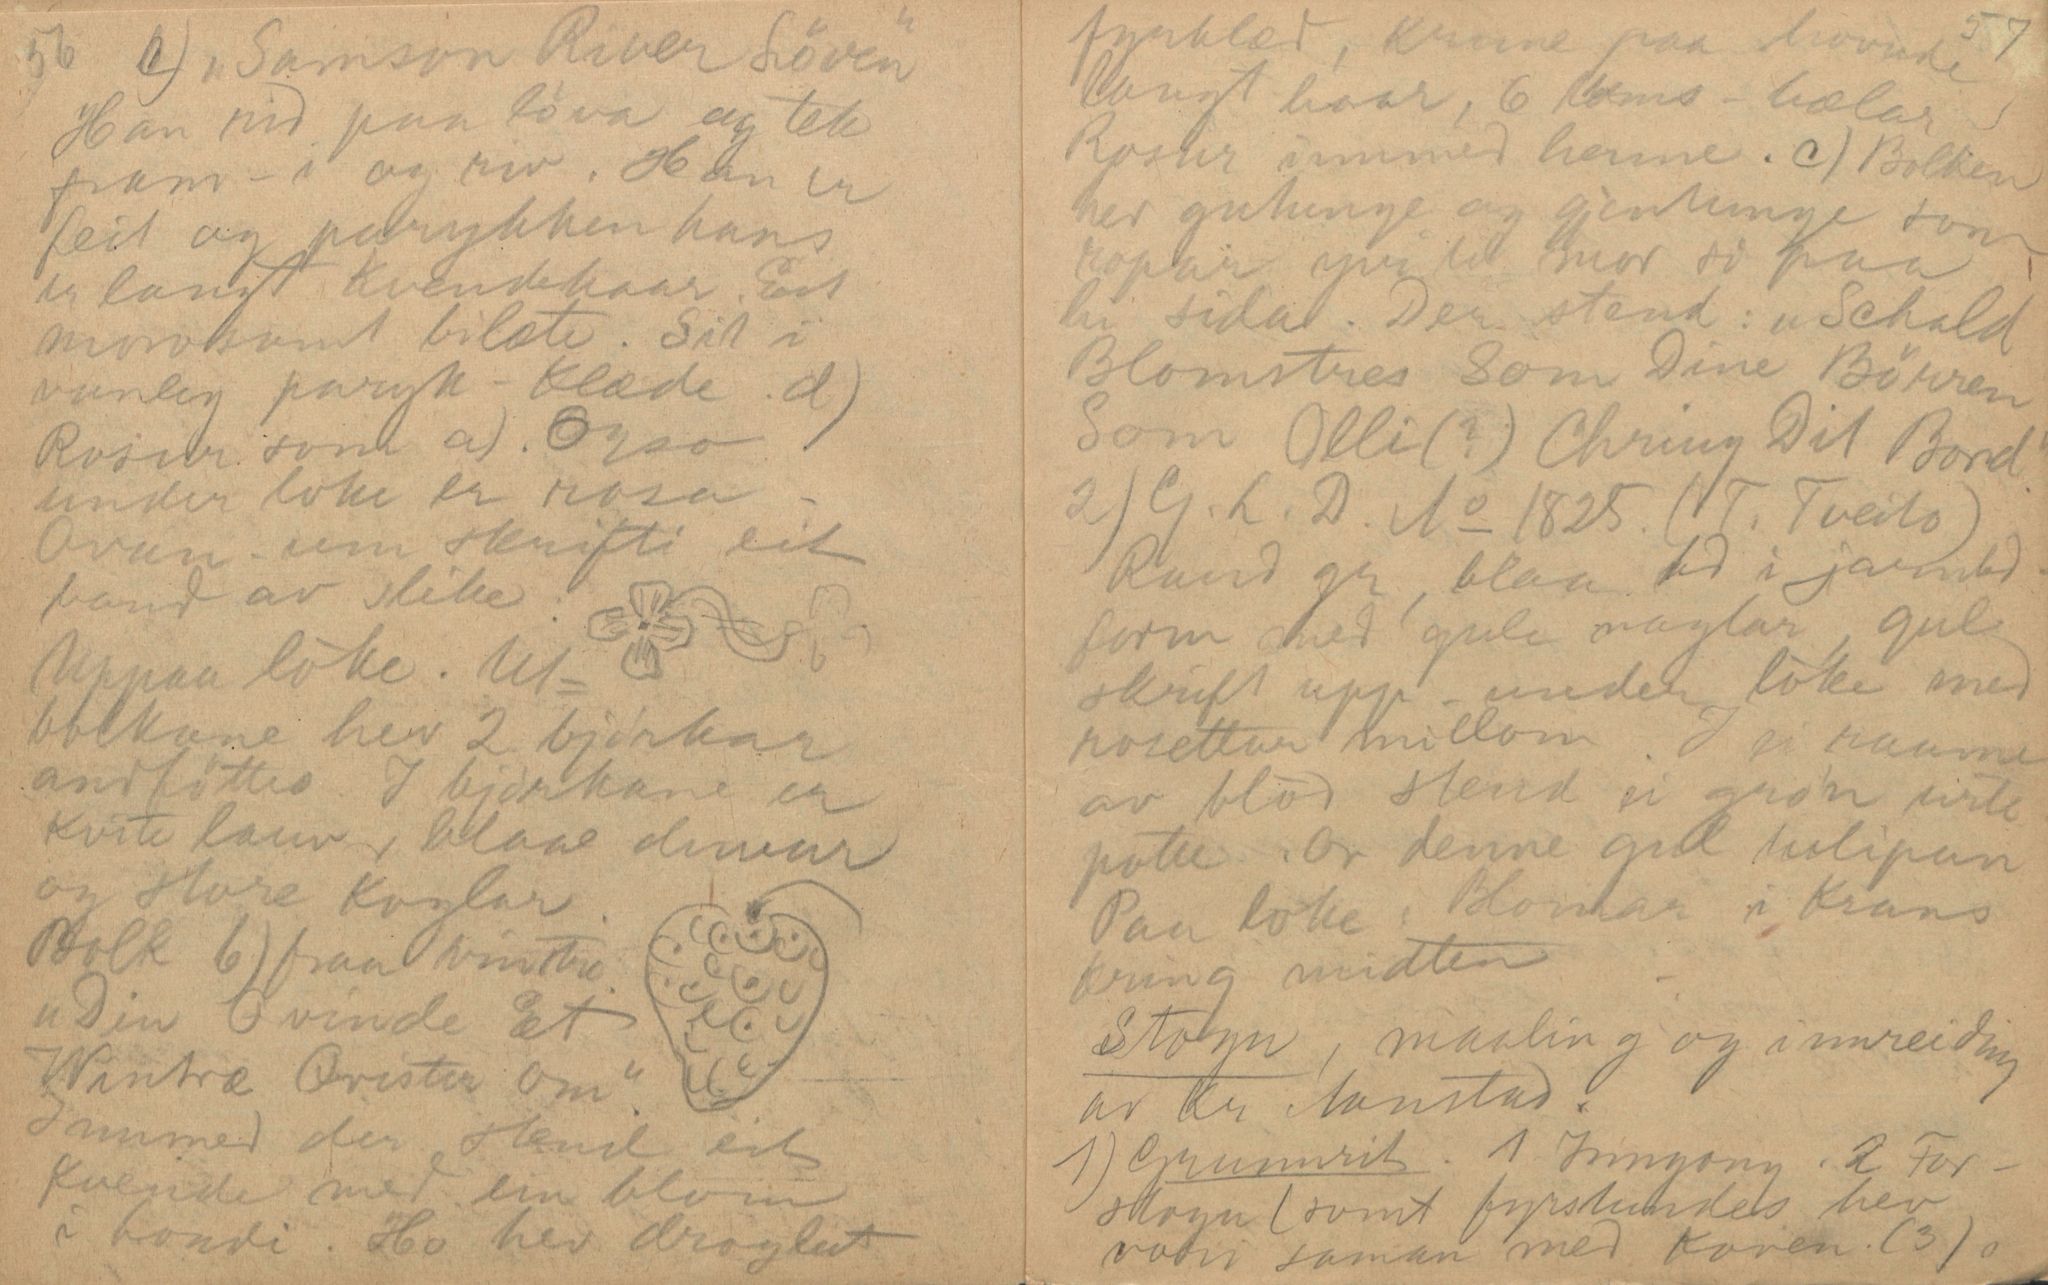 56 c) „Samson River Löven"
Han rid paa löva og tek
fram-i og riv. Han er
feit og parykken hans
er langt kvendehaar. Eit
morosamt bilæte. Sit i
vanleg paryk-klæde. d)
Rosur som a). Ogso
under loke er rosa -
Ovan-um skrifti eit
band av slike:
Uppaa loke. Ut-
bockane hev 2 björkar
andföttes. I björkane er
kvite lauv, blaae druvur
og store koglar.
Bolk b) fraa vintre.
„Din Qvinde Et
Wintræ Qvister Om".
Innmed der stend eit
kvende med ein blom
i hondi. Ho hev droglut
57
fyrklæd, krune paa hovude
langt haar, 6 toms-hælar
Rosur innmed henne. c) Bolken
hev gutunge og gjentunge som
ropar yvi til mor si paa
hi sida. Der stend: „Schald
Blomstres Som Dine Börren
Som Olli(?) Chring Dit Bord"
2) G. L. D. No 1825. (T. Tveito)
Raud gr, blaa bd i jarnbd-
form med gule naglar, gul
skrift upp-under loke med
rosettur millom. I ei raame
av blöd stend ei grön urte
potte. Or denne gul tulipan
Paa loke: Blomar i krans
kring midten
Stogu, maaling og innreiding
av Kr Aanstad.
1) Grunnrit. 1 Inngong. 2 For-
stogu (somt fyrstundes hev
vori saman med koven. (3).